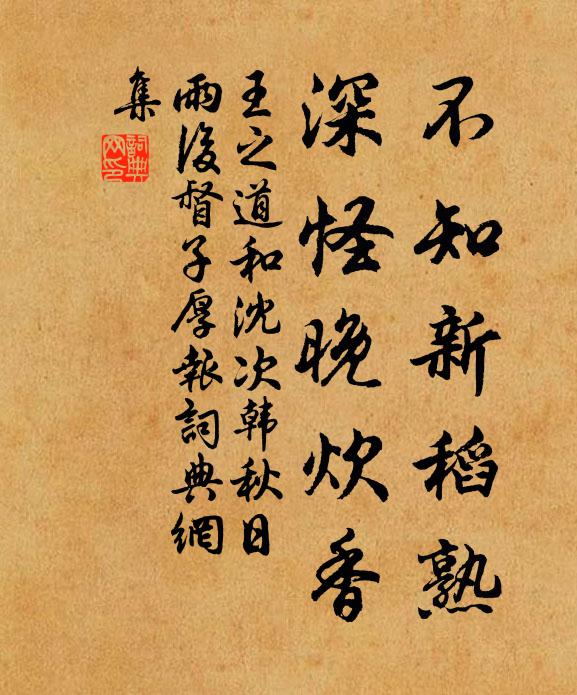 不知新稻熟
深怪晚炊香
王之道和沈次韩秋日
雨後督子厚報詞典網
集
詞典網印